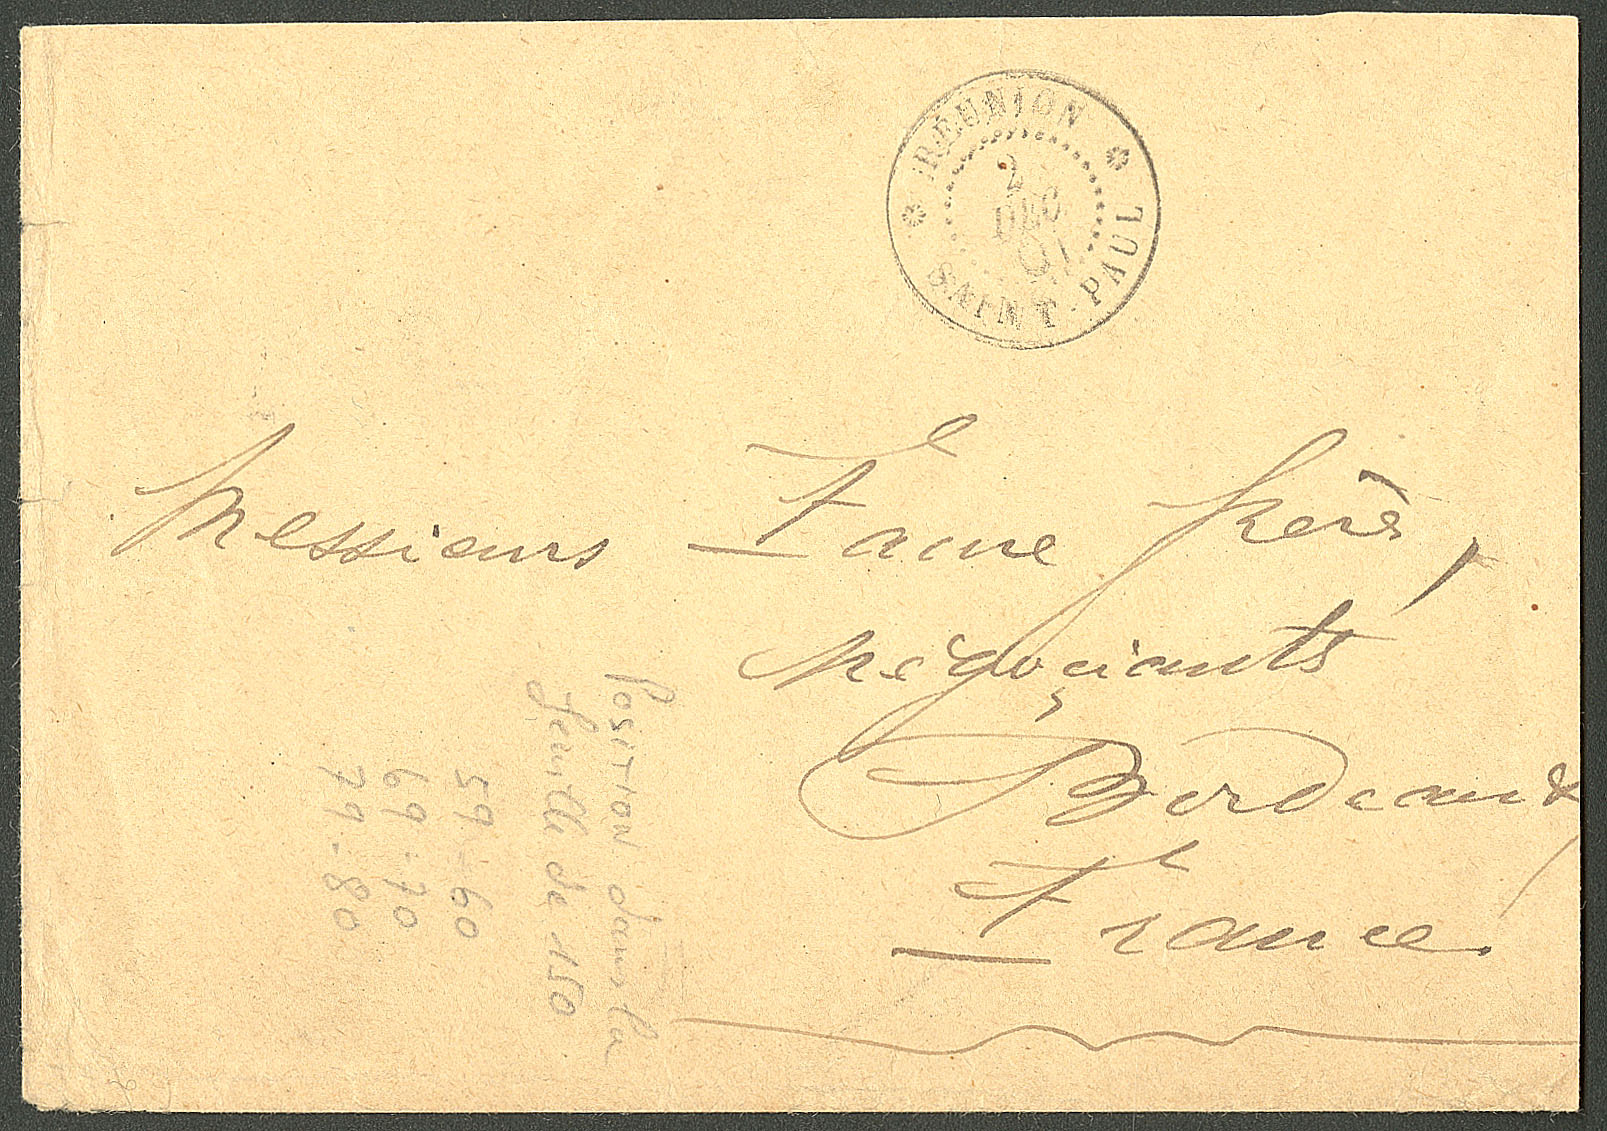 RÉUNION
2
DEC
01
SAINT-PAUL
Messieurs Faure frères,
Négociants
Bordeaux
France.
Position dans la
feuille de 150
59-60
69-70
79-80